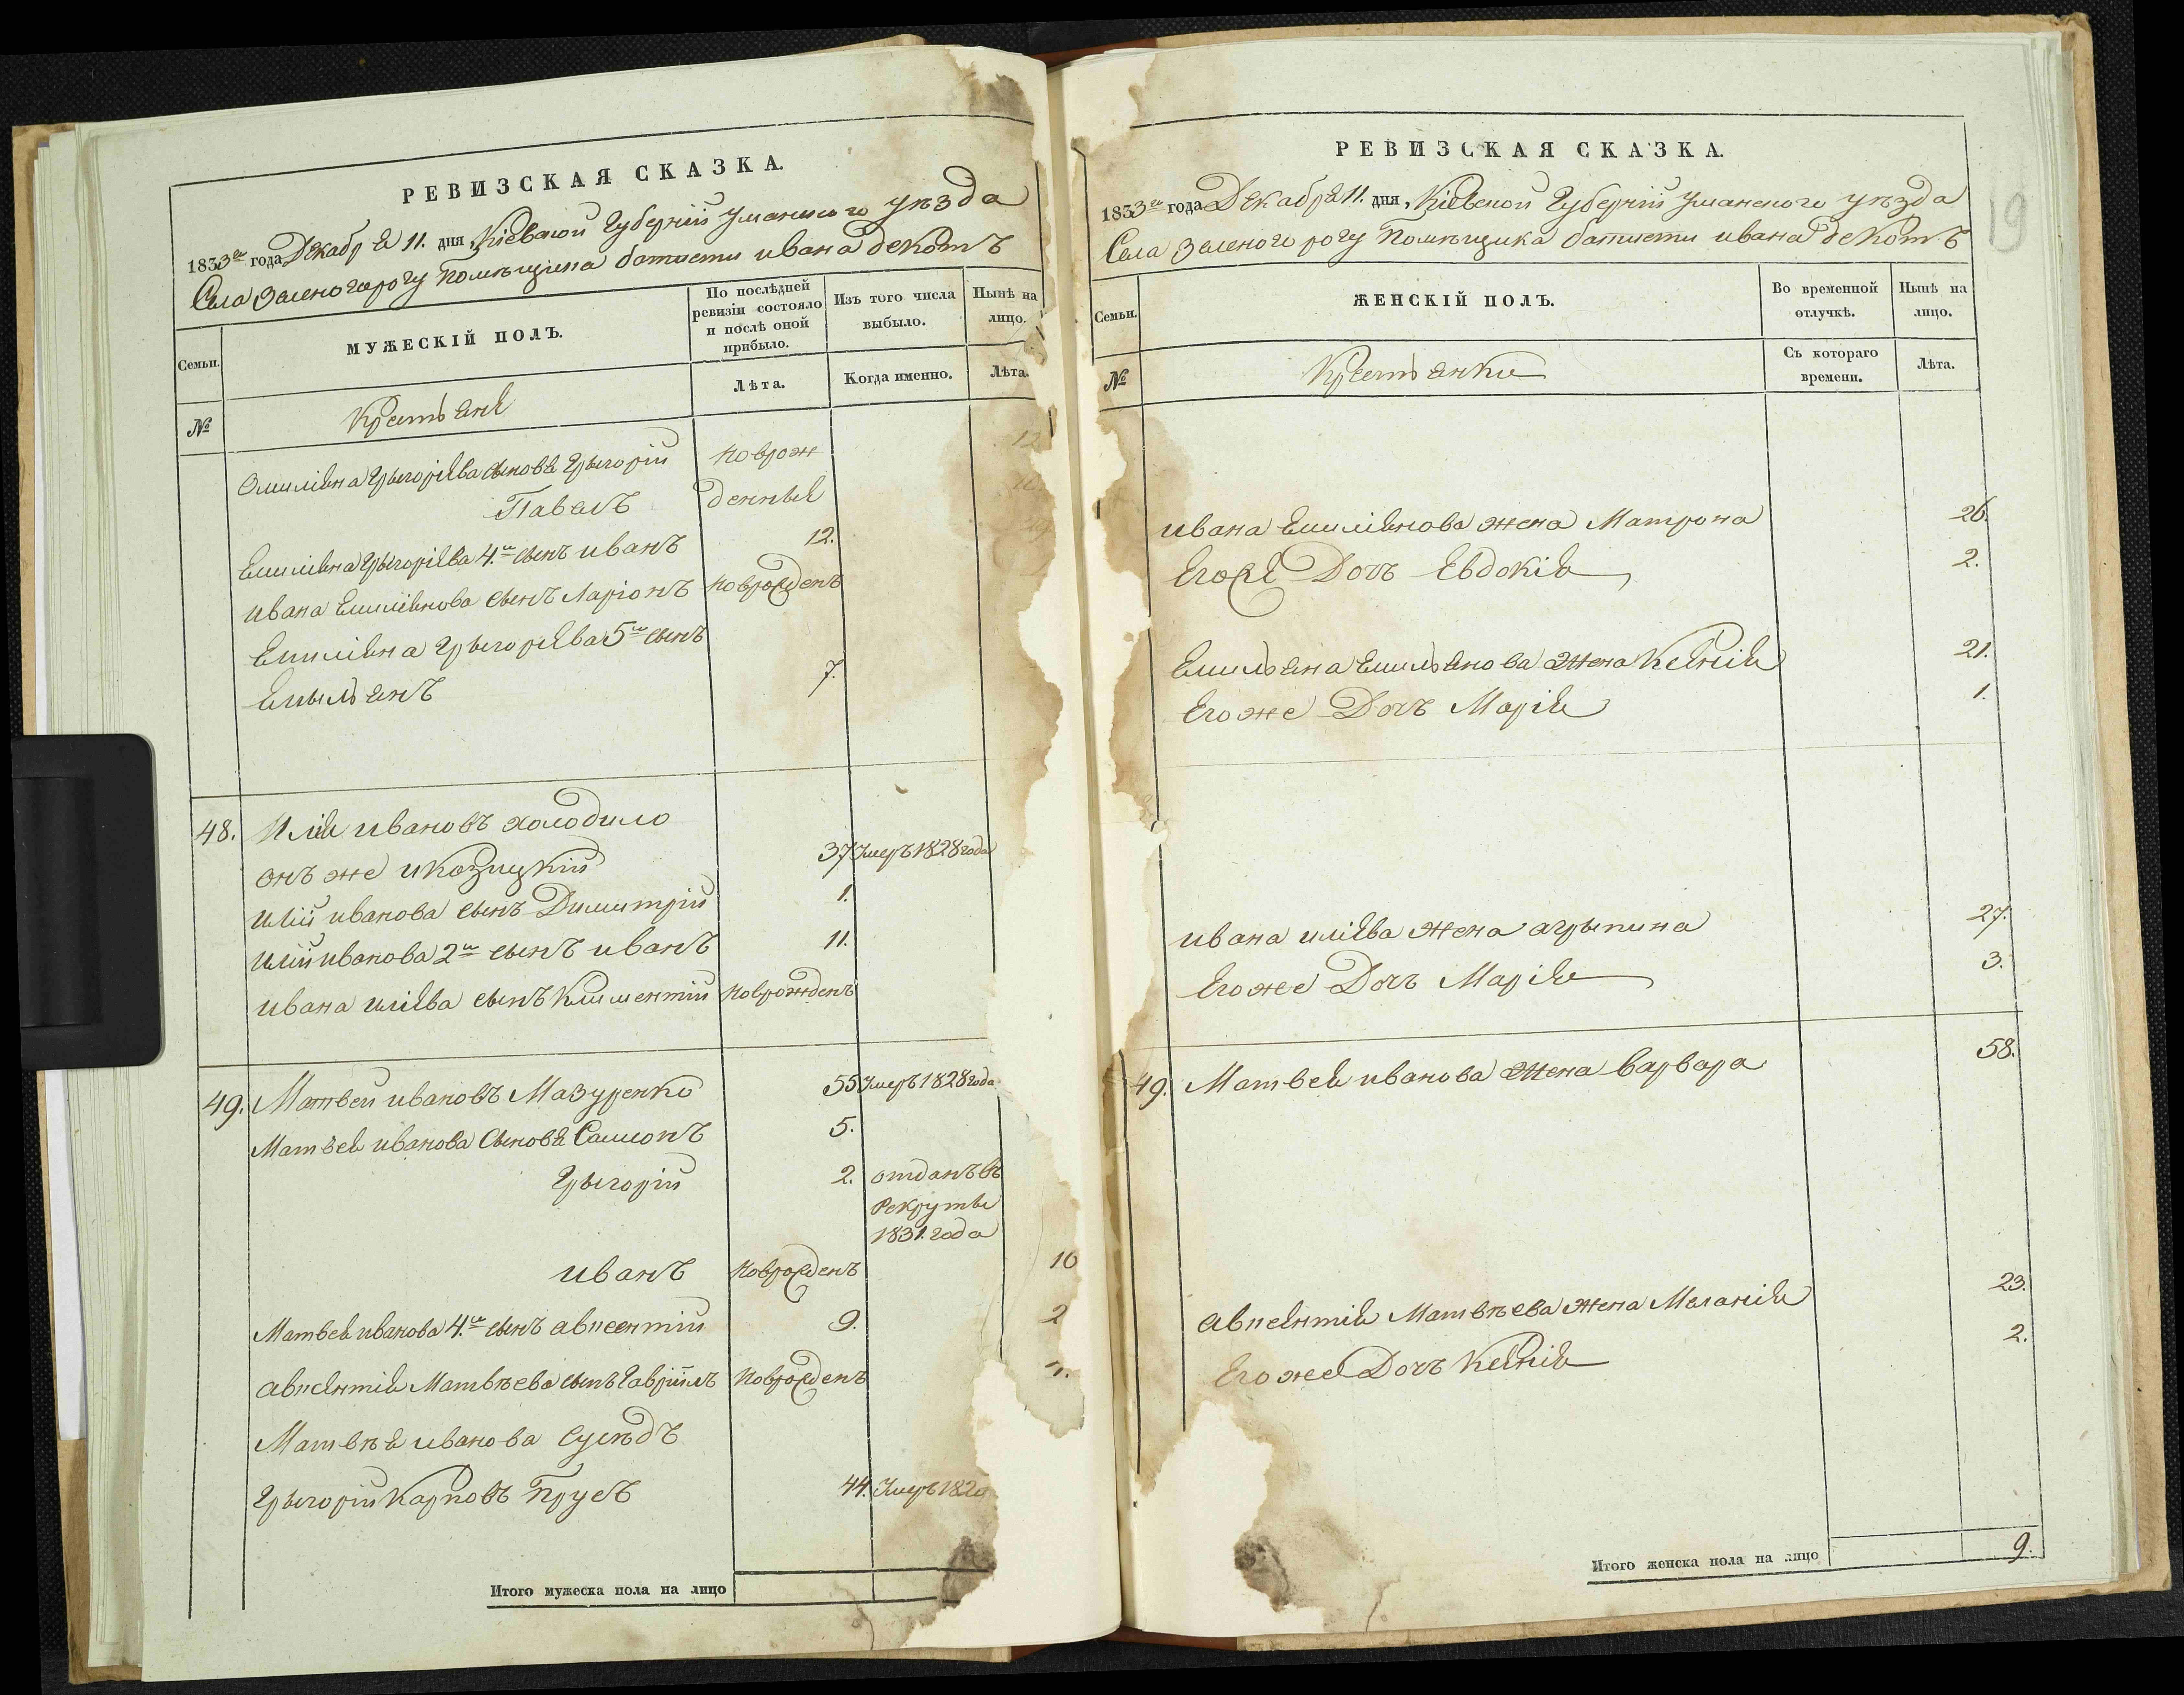 РЕВИЗСКАЯ СКАЗКА.
1833го года Декабря 11. дня, Кіевской Губерніи Уманского уѣзда
Села Зеленого рогу Помѣщика батисти ивана декотъ
Семьи.
МУЖЕСКІЙ ПОЛЪ.
По послѣдней ревизіи состояло и послѣ оной прибыло.
Изъ того числа выбыло.
Нынѣ на лицо.
№
Крестьяне
Лѣта.
Когда именно.
Лѣта.
Омиліяна Грыгоріева сыновя Грыгорій новрож 12
Павелъ денныя
Емиліяна Грыгоріева 4й сынъ иванъ 12.
ивана Емиліянова сынъ Ларіонъ новрожденъ
Емиліяна Грыгоріева 5й сынъ
Емыльянъ 7.
48. Илія ивановъ холодило
онъ же и Козицкій 37 Умеръ 1828 года
иліи иванова сынъ Димитрій 1.
иліи иванова 2й сынъ иванъ 11.
ивана иліева сынъ Климентій новрожденъ
49. Матвей ивановъ Мазуренко 55 Умеръ 1828 года
Матвея иванова Сыновя Самсонъ 5.
Грыгорій 2. отданъ въ
Рекруты
1831. года
иванъ новрожденъ 10
Матвея иванова 4й сынъ авксентій 9. 2
авксентія Матвѣева сынъ Гавріилъ Новрожденъ
Матвѣя иванова Сусѣдъ
Грыгорій Карповъ Прусъ 44. Умеръ 182
Итого мужеска пола на лицо
РЕВИЗСКАЯ СКАЗКА.
19
1833го года Декабря 11. дня, Кіевской Губерніи Уманского уѣзда
Села Зеленого рогу Помѣщика батисти ивана декотъ
Семьи.
ЖЕНСКІЙ ПОЛЪ.
Во временной отлучкѣ.
Нынѣ на лицо.
№
Крестьянки
Съ котораго времени.
Лѣта.
ивана Емиліянова жена Матрона 26.
Егоже Дочь Евдокія 2.
Емильяна Емильянова жена Ксенія 21.
Егоже Дочъ Марія 1.
ивана иліева жена агрыпина 27.
Егоже Дочъ Марія 3.
49. Матвея иванова жена варвара 58.
авксентія Матвѣева жена Меланія 23.
Егоже Дочъ Ксенія 2.
Итого женска пола на лицо 9.